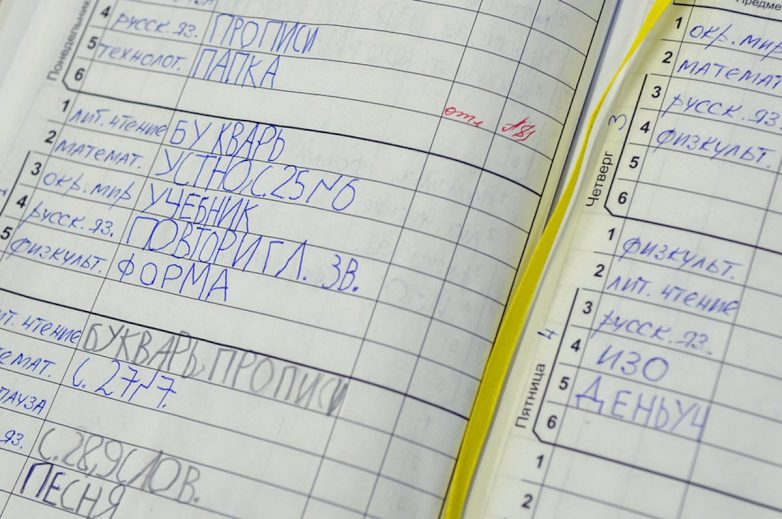 Понедельник
4 русск. яз. ПРОПИСИ
5 технолог. ПАПКА
6
отл
1 лит. чтение БУКВАРЬ
2 математ. УСТНО, С. 25 №6
3 окр. мир УЧЕБНИК
4 русск. яз. ПОВТОРИ ГЛ. ЗВ.
5 физкульт. ФОРМА
ит. чтение БУКВАРЬ, ПРОПИСИ
емат. С. 27 №7.
пауза
яз. С. 28, 9 СЛОВ.
ПЕСНЯ
Предме
Четверг 3
1 окр. мир
2 математ
3 русск. яз.
4 физкульт.
5
6
Пятница 4
1 физкульт.
2 лит. чтение
3 русск. яз.
4 ИЗО
5 ДЕНЬ УЧ
6
1
2